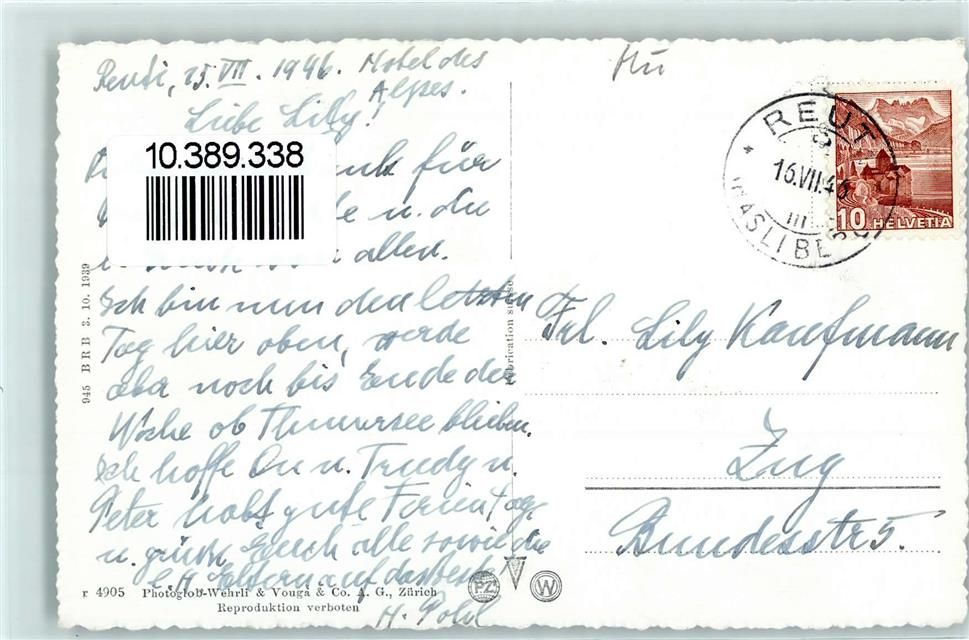 Reuti, 15. VII. 1946. Hotel des
Alpes.
Liebe Lily!
10.389.338
für
u. die
allen.
Ich bin nun den letzten
Tag hier oben, werde
aber noch bis Ende der
Woche ob Thunersee bleiben.
Ich hoffe Du u. Trudy u.
Peter habt gute Ferientage
u. grüsse Euch alle sowie die
l. H. Eltern auf das beste
H. Pohl
945 BRB 3. 10. 1939
r 4905 Photoglob-Wehrli & Vouga & Co. A. G., Zürich
Reproduktion verboten
PZ
W
REUTI
16.VII.46
HASLIBERG
10 HELVETIA
Frl. Lily Kaufmann
Zug
Bundesstr 5.